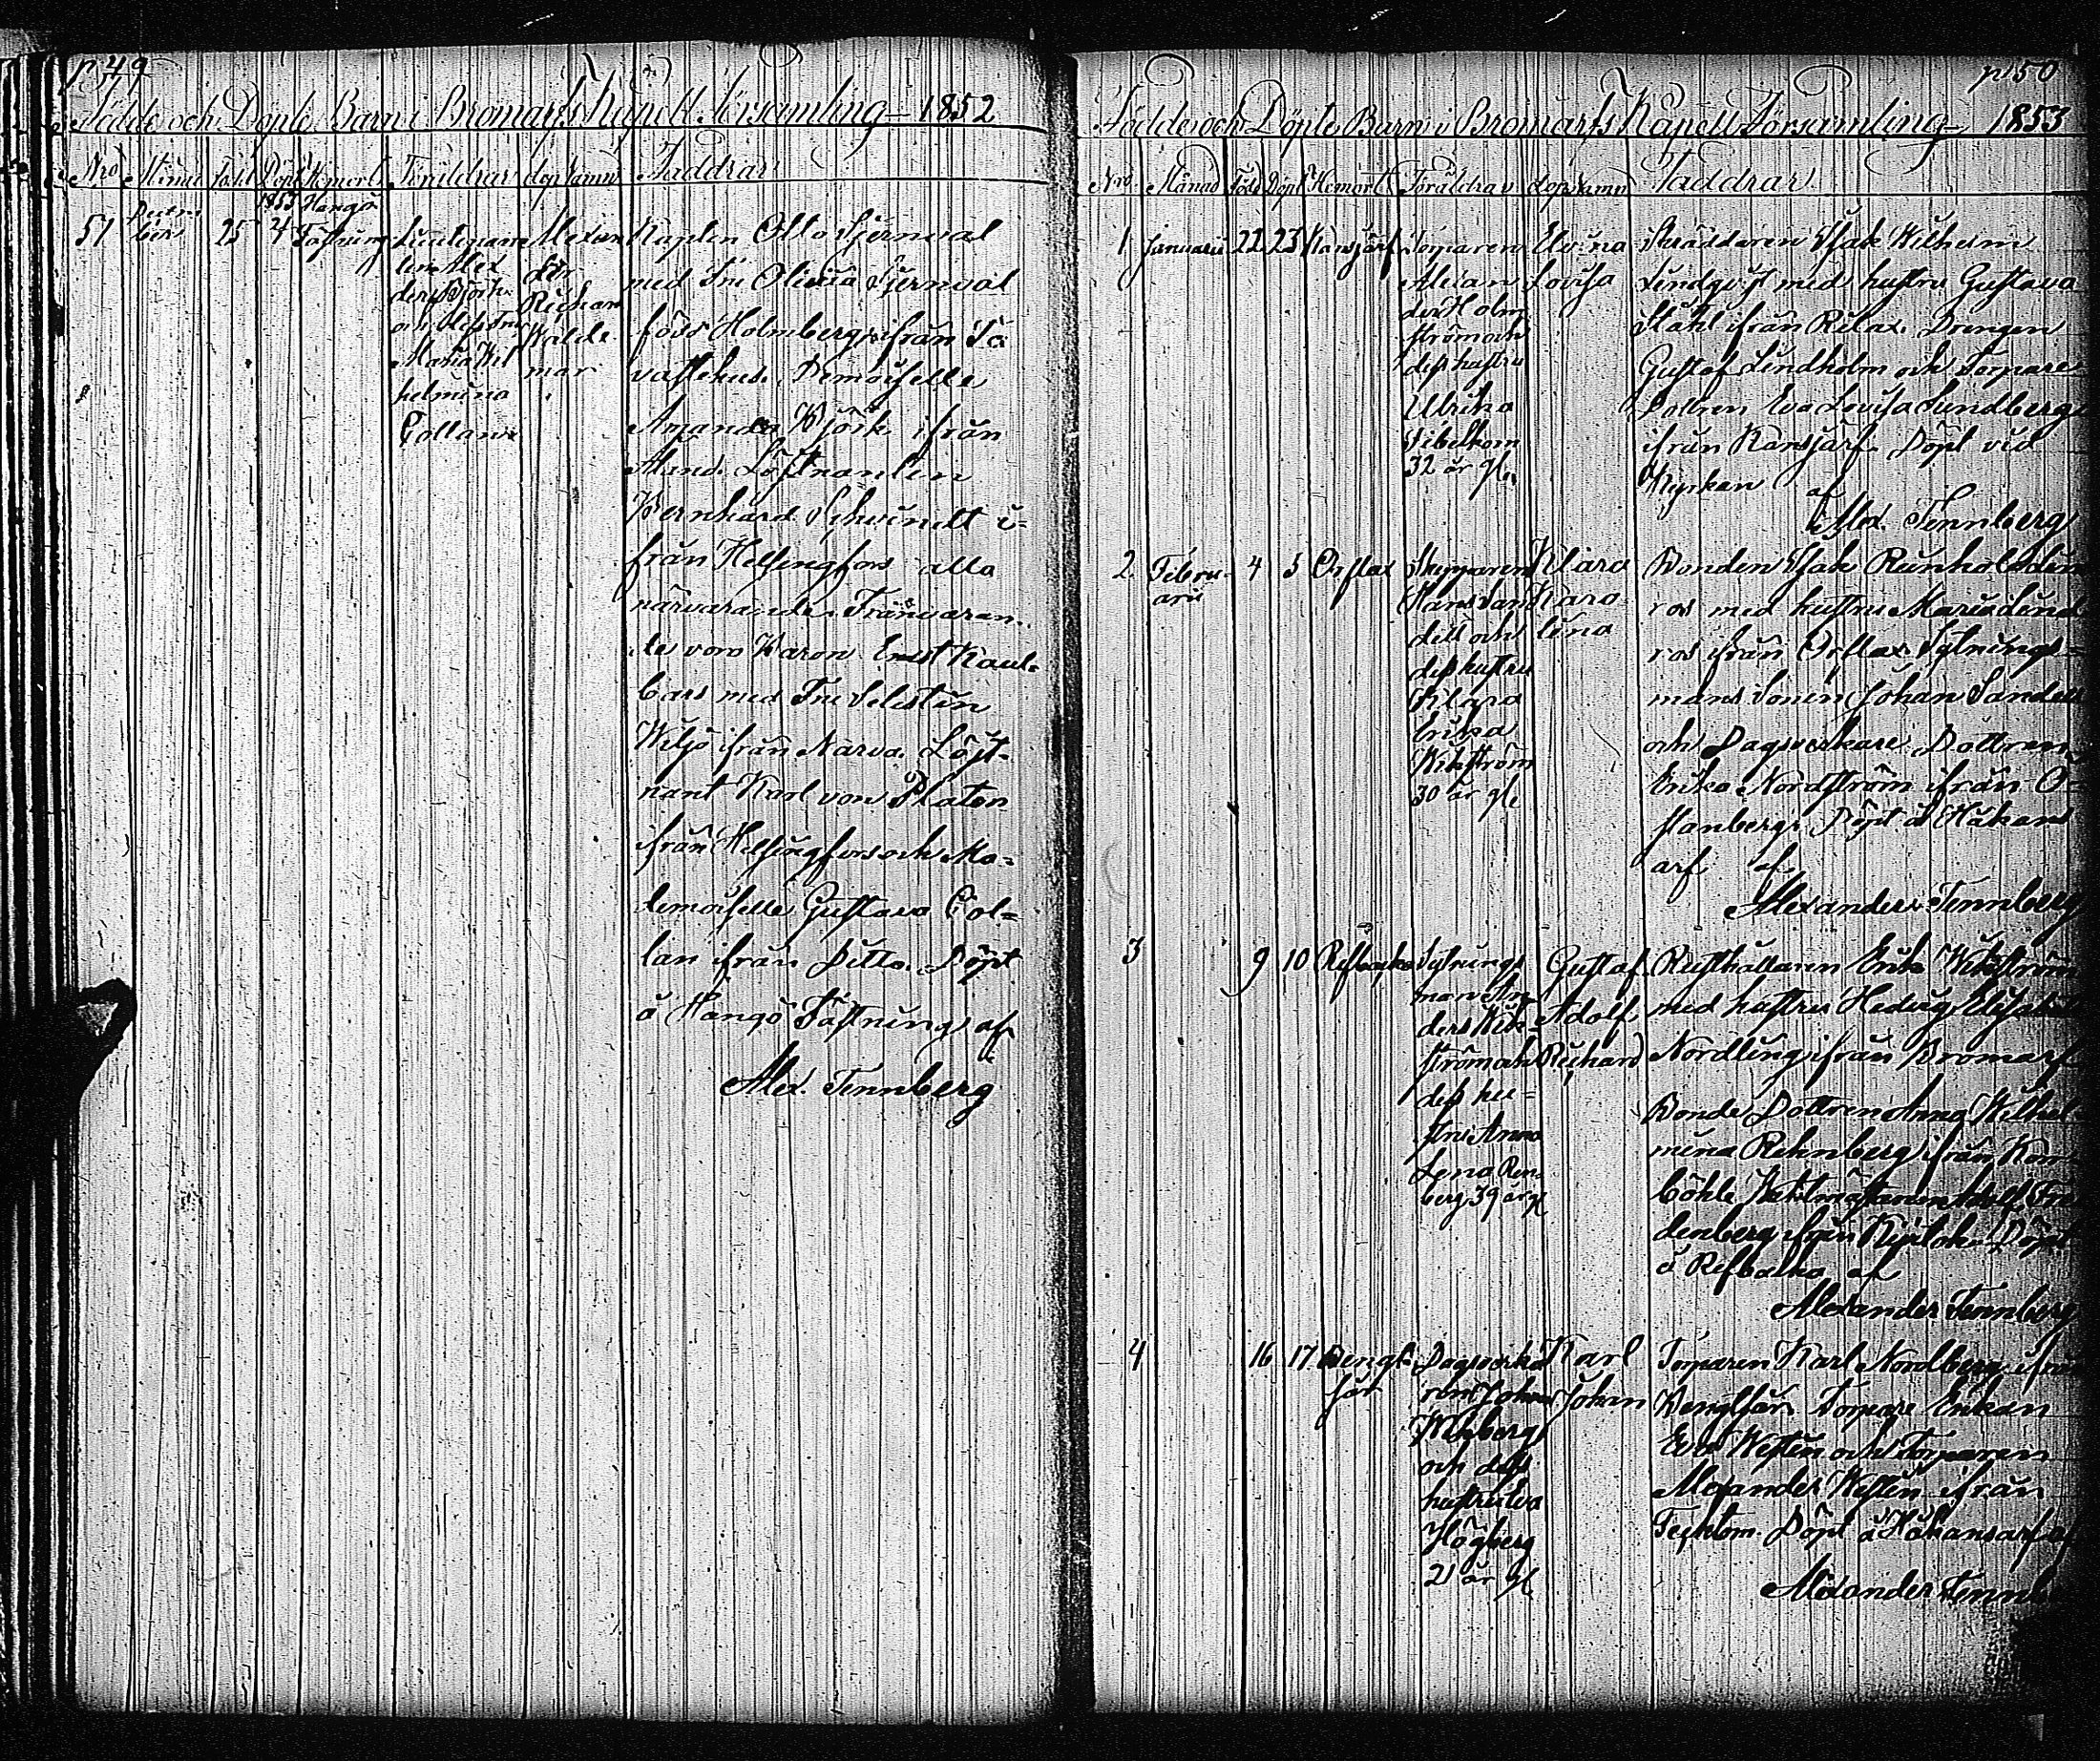 p 49
Födde och Döpte Barn i Bromarfs Kapell Församling 1852
Nro Månad Född Döpt Hemort Föräldrar dopnamn Faddrar
51 Decem
ber 25 1853
4 Hangö
Fästning
Lieutenan
ten Alex
der Björk
och dess fru
Maria Wil
helmina
Collan
Alexan
der
Richard
Walde
mar
Kapten Otto Stjernval
med Fru Olivia Stjernval
född Holmberg ifrån Ta
vastehus. Demoiselle
Amanda Björk ifrån
Åland. Löjtnanten
Bernhard Schvindt i-
från Helsingfors alla
närvarande. Frånvaran-
de voro Baron Ernst Kaul-
bars med Fru Selestin
ifrån Narva. Löjt-
nant Karl von Platen
ifrån Helsingfors och Ma-
demoiselle Gustava Col-
lan ifrån Ditto. Döpt
å Hangö Fästning af
Alex. Tennberg
p 50
Födde och Döpte Barn i Bromarfs Kapell Församling 1853
Nro Månad Född Döpt Hemort Föräldrar dopnamn Faddrar
1 Januarii 22 23 Kansjärf
Torparen
Alexan
der Holm
ström och
dess hustru
Ulrika
32 år gl.
Elvina
Lovisa
Skräddaren Isak Wilhelm
Lindqvist med hustru Gustava
Ståhl ifrån Rilax. Drengen
Gustaf Lindholm och Torpare
Dottren Eva Lovisa Lundberg
ifrån Kansjärf. Döpt vid
Kyrkan af
Alex. Tennberg
2. Febru-
arii 4 5 Orslax
Skepparen
Hans San
dell och
dess hustru
Klara
Erika
Wikström
30 år gl.
Klara
Karo
lina
Bonden Isak Reinhold Lind
ros med hustru Maria Lind
ros ifrån Orslax. Sytnings-
mans Sonen Johan Sandell
och Dagsverkare Dottren
Erika Nordström ifrån Ö
stanberg. Döpt å Håkans
arf af
Alexander Tennberg
3 9 10 Refbacka
Sytnings
man An
ders Wik
ström och
dess hu-
stru Anna
Lena Ren
berg 39 år gl
Gustaf
Adolf
Richard
Rusthållaren Erik Wikström
med hustru Hedvig Elisabet
Nordling ifrån Bromarf
Bonde Dottren Anna Wilhel
mina Rehnberg ifrån Kom
böhle Waktmästaren Adolf Fri
denberg ifrån Döpt
å Refbacka af
Alexander Tennberg
4 16 17 Bengt-
sår
Dagsverka
ren Johan
Wikberg
och dess
hustru Eva
Högberg
21 år gl
Karl
Johan
Torparen Karl Nordberg ifrån
Bengtsår. Torpare Enkan
Eva Westen och Torparen
Alexander Westen ifrån
Täcktom. Döpt å Håkansarf af
Alexander Tennb